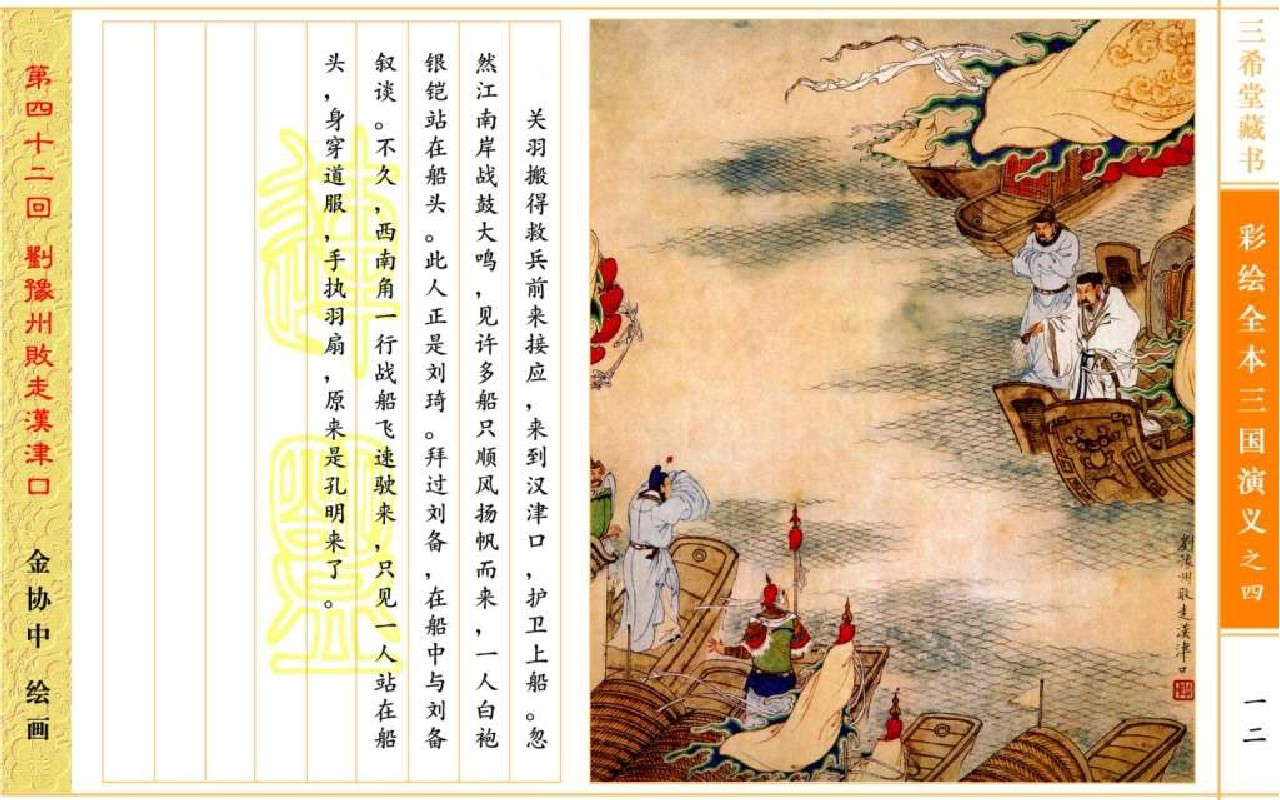 三希堂藏书
彩绘全本三国演义之四
一二
劉豫州敗走漢津口
关羽搬得救兵前来接应，来到汉津口，护卫上船。忽
然江南岸战鼓大鸣，见许多船只顺风扬帆而来，一人白袍
银铠站在船头。此人正是刘琦。拜过刘备，在船中与刘备
叙谈。不久，西南角一行战船飞速驶来，只见一人站在船
头，身穿道服，手执羽扇，原来是孔明来了。
第四十二回 劉豫州敗走漢津口
金协中 绘画